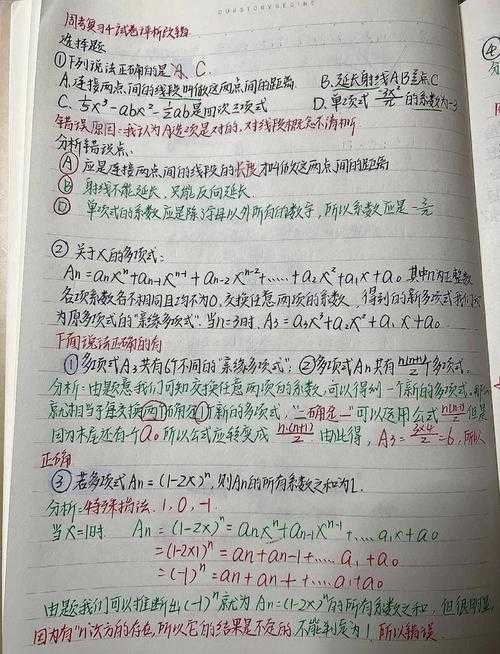 OUR STORY BEGINS
周考复习+试卷评析改错
选择题
①下列说法正确的是 A C.
A.连接两点间的线段叫做这两点间的距离 B.延长射线AB至点C
C. 1/5x³-abx²-1/2ab是四次三项式 D.单项式 -3x²/π 的系数为-3
错误原因:我认为A选项是对的,对线段概念不清晰
分析错误点:
Ⓐ 应是连接两点间的线段的长度才叫做这两点间的距离
Ⓑ 射线不能延长,只能反向延长.
Ⓓ 单项式的系数应是除字母以外所有的数字,所以系数应是-3/π
② 关于X的多项式:
An=anxⁿ+an-1xⁿ⁻¹+an-2xⁿ⁻²+……+a₂x²+a₁x+a₀ 其中n为正整数
各项系数各不相同且均不为0,交换任意两项的系数,得到的新多项式我们
为原多项式的"亲缘多项式".当n=3时,A₃=a₃x³+a₂x²+a₁x+a₀.
下面说法正确的有
①多项式A₃共有6个不同的"亲缘多项式"; ②多项式An共有n(n+1)/2个多项式;
分析:由题意我们可知交换任意两项的系数,可以得到一个新的多项式.那
就相当于每交换两个确定①个新的多项式,"一确定一"可以运用公式n(n-1)/2但是
因为末尾还有个a₀所以公式应转变成 n·(n+1)/2 由此得, A₃=3×4/2=6,所以
正确
③若多项式An=(1-2x)ⁿ,则An的所有系数之和为1.
分析:特殊值法. 1, 0, -1.
当X=1时. An=(1-2x)ⁿ=anxⁿ+an-1xⁿ⁻¹+……a₁x+a₀
=(1-2×1)ⁿ=an+an-1+……a₁+a₀
=(-1)ⁿ=an+an-1+……a₁+a₀
由题我们可以推断出(-1)ⁿ就为An=(1-2x)ⁿ的所有系数之和,但很明显,
因为有"n"次方的存在,所以它的结果是不定的,不能判定为1,所以错误.
④